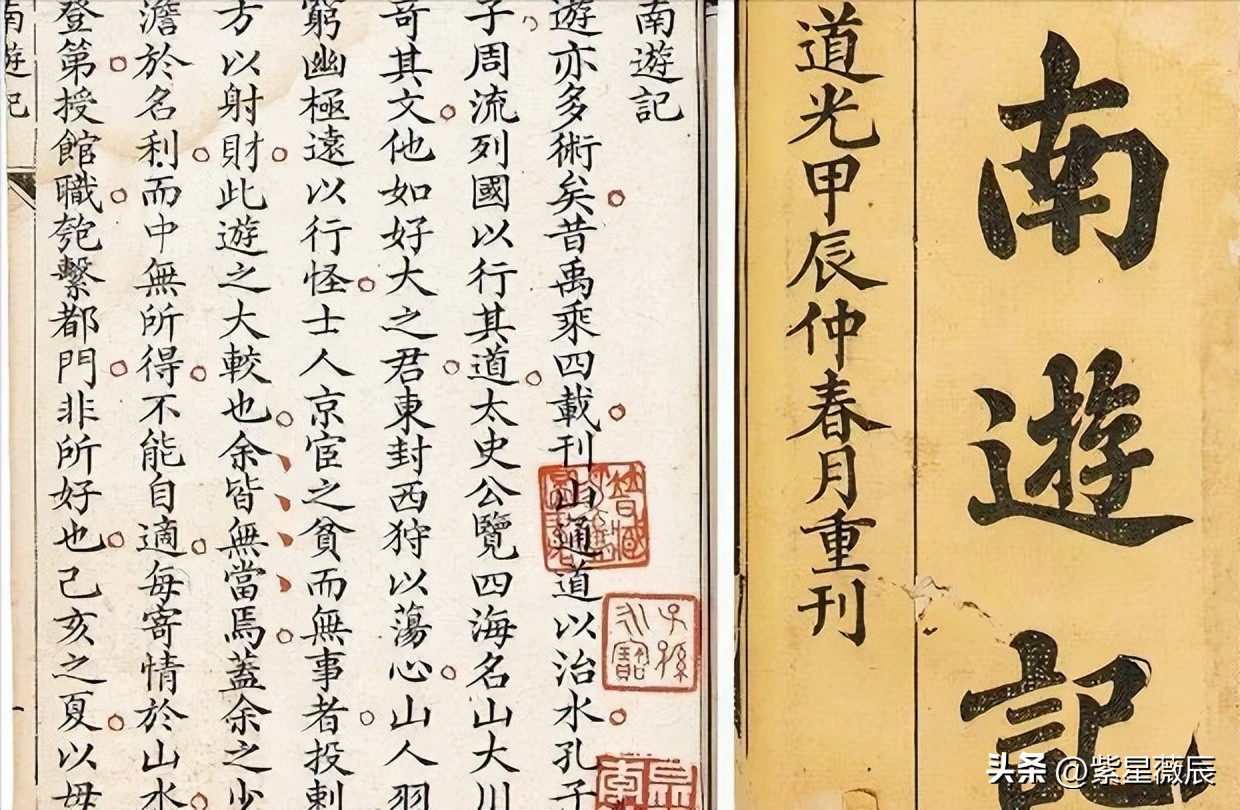 南遊記
道光甲辰仲春月重刊
南遊記
遊亦多術矣昔禹乘四載刊山通道以治水孔子
子周流列國以行其道太史公覽四海名山大川
奇其文他如好大之君東封西狩以蕩心山人羽
窮幽極遠以行怪士人京宦之貧而無事者投刺
方以射財此遊之大較也余皆無當焉蓋余之少
澹於名利而中無所得不能自適每寄情於山水
登第授館職匏繫都門非所好也己亥之夏以母
南遊記
子孫
永寶
头条 @紫星薇辰